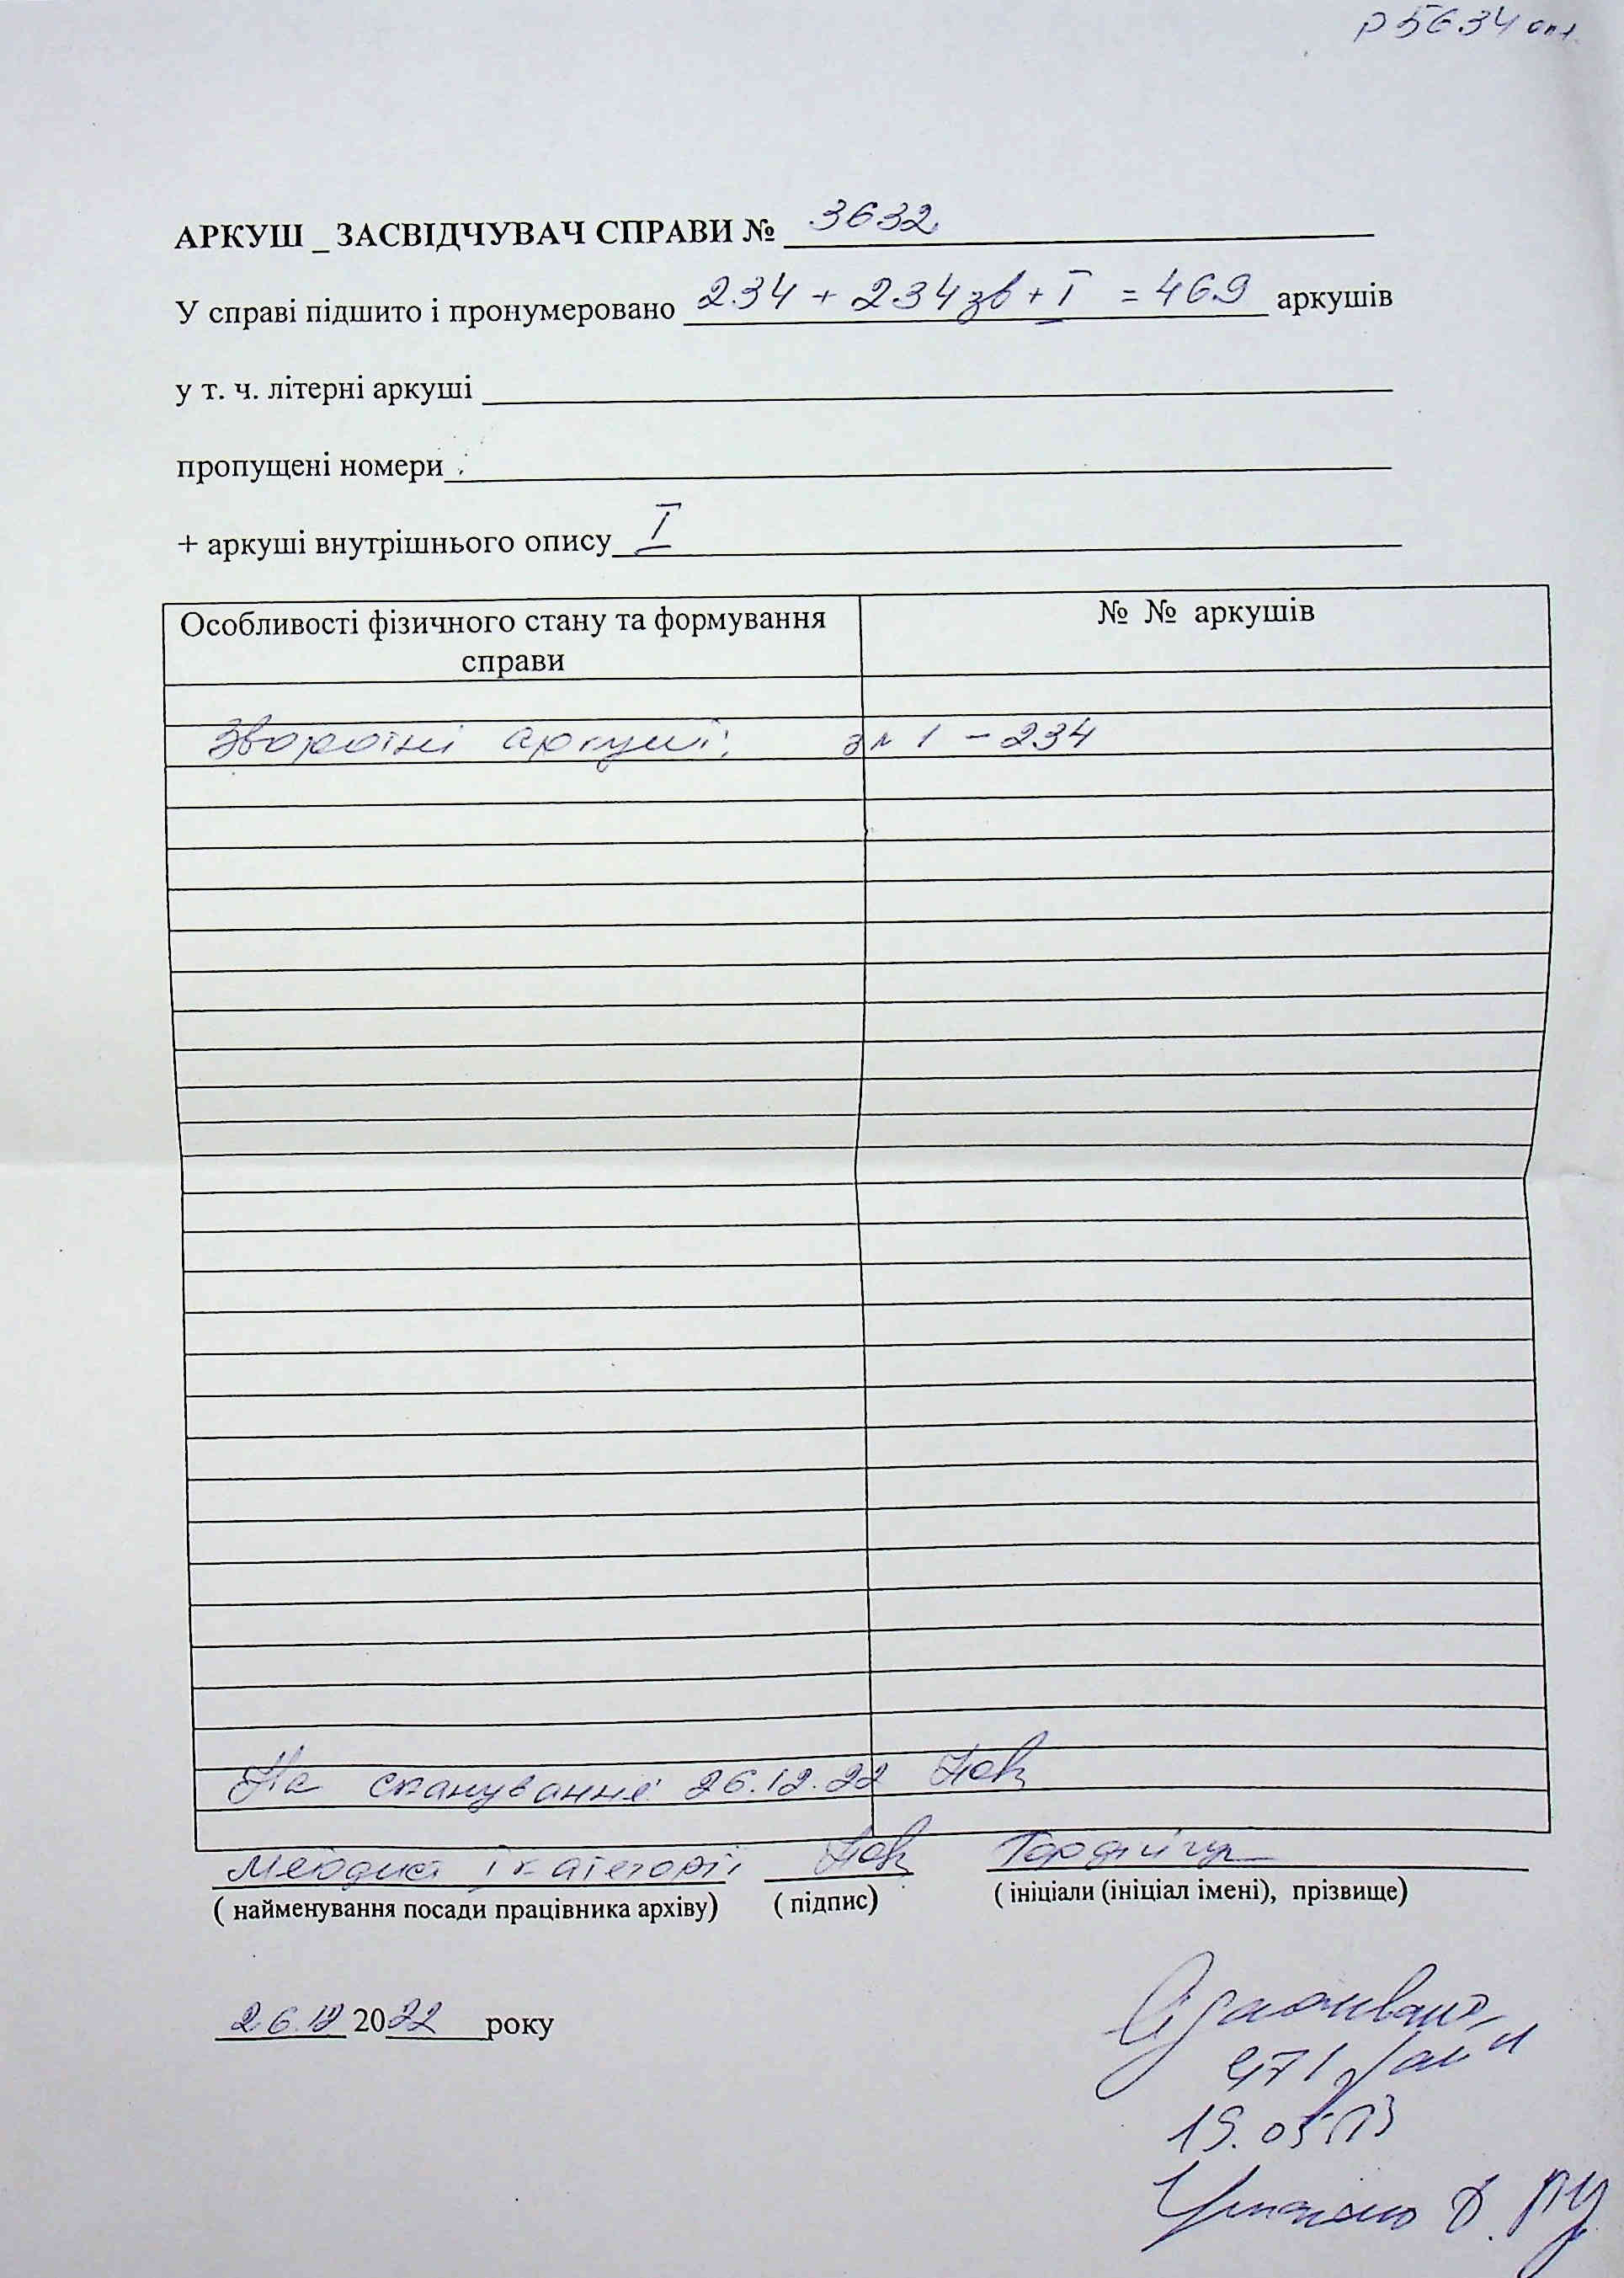 Р5634 оп1
АРКУШ _ ЗАСВІДЧУВАЧ СПРАВИ № 3632
У справі підшито і пронумеровано 234 + 234зв + I = 469 аркушів
у т. ч. літерні аркуші
пропущені номери
+ аркуші внутрішнього опису I
Особливості фізичного стану та формування справи
№ № аркушів
Зворотні аркуші: 1 - 234
На сканування 26.12.22
Методист І категорії Гордійчук
( найменування посади працівника архіву) ( підпис) ( ініціали (ініціал імені), прізвище)
26.12 2022 року
Відскановано
471
19.05.